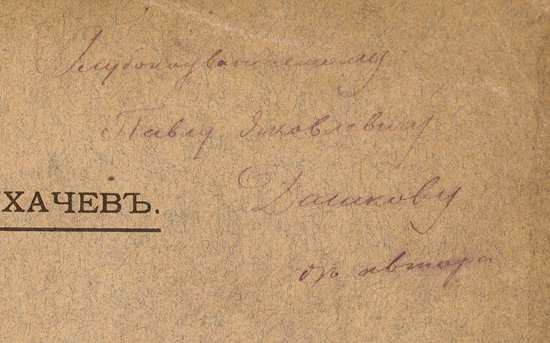 Глубокоуважаемому
Павлу Яковлевичу
ХАЧЕВЪ.
Дашкову
отъ автора